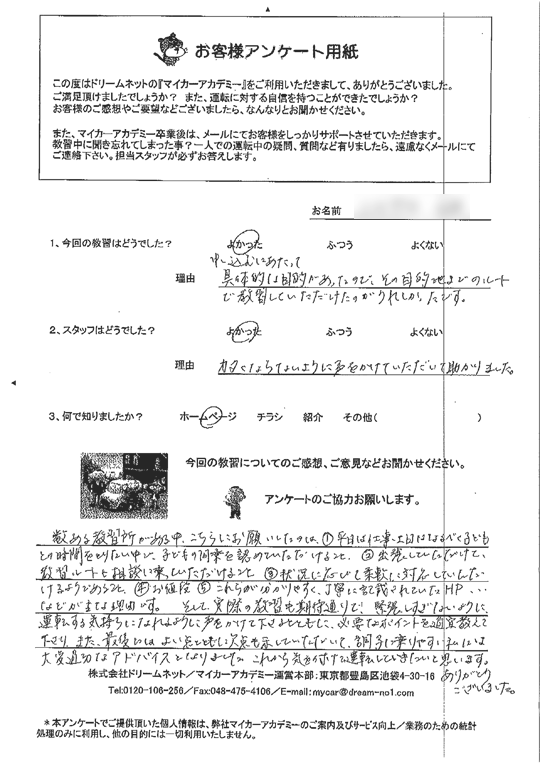 お客様アンケート用紙
この度はドリームネットの『マイカーアカデミー』をご利用いただきまして、ありがとうございました。
ご満足頂けましたでしょうか？ また、運転に対する自信を持つことができたでしょうか？
お客様のご感想やご要望などございましたら、なんなりとお聞かせください。
また、マイカーアカデミー卒業後は、メールにてお客様をしっかりサポートさせていただきます。
教習中に聞き忘れてしまった事？一人での運転中の疑問、質問など有りましたら、遠慮なくメールにて
ご連絡下さい。担当スタッフが必ずお答えします。
お名前
1、今回の教習はどうでした？ よかった ふつう よくない
申し込むにあたって
理由 具体的な目的があったので、その目的地までのルート
で教習していただけたのがうれしかったです。
2、スタッフはどうでした？ よかった ふつう よくない
理由 カタくならないように声をかけていただいて助かりました。
3、何で知りましたか？ ホームページ チラシ 紹介 その他( )
今回の教習についてのご感想、ご意見などお聞かせください。
アンケートのご協力お願いします。
数ある教習所がある中、こちらにお願いしたのは、①平日は仕事、土日はなるべく子ども
との時間をとりたい中で、子どもの同乗を認めていただけること、②出張していただけて、
教習ルートも相談に乗っていただけること ③状況に応じて柔軟に対応していただ
けるようであること、④お値段 ⑤これらが分かりやすく、丁寧に記載されていたHP…
などがまな理由です。 そして、実際の教習も期待通りで! 緊張しすぎないように、
運転する気持ちになれるように声をかけて下さるとともに、必要なポイントを適宜教えて
下さり、また、最後には よい点とともに欠点も示していただいて、調子に乗りやすい私には
大変適切なアドバイスとなりました。これから気を付けて運転していきたいと思います。
ありがとう
ございました。
株式会社ドリームネット／マイカーアカデミー運営本部：東京都豊島区池袋4-30-16
Tel:0120-106-256／Fax:048-475-4106／E-mail:mycar@dream-no1.com
＊本アンケートでご提供頂いた個人情報は、弊社マイカーアカデミーのご案内及びサービス向上／業務のための統計
処理のみに利用し、他の目的には一切利用いたしません。